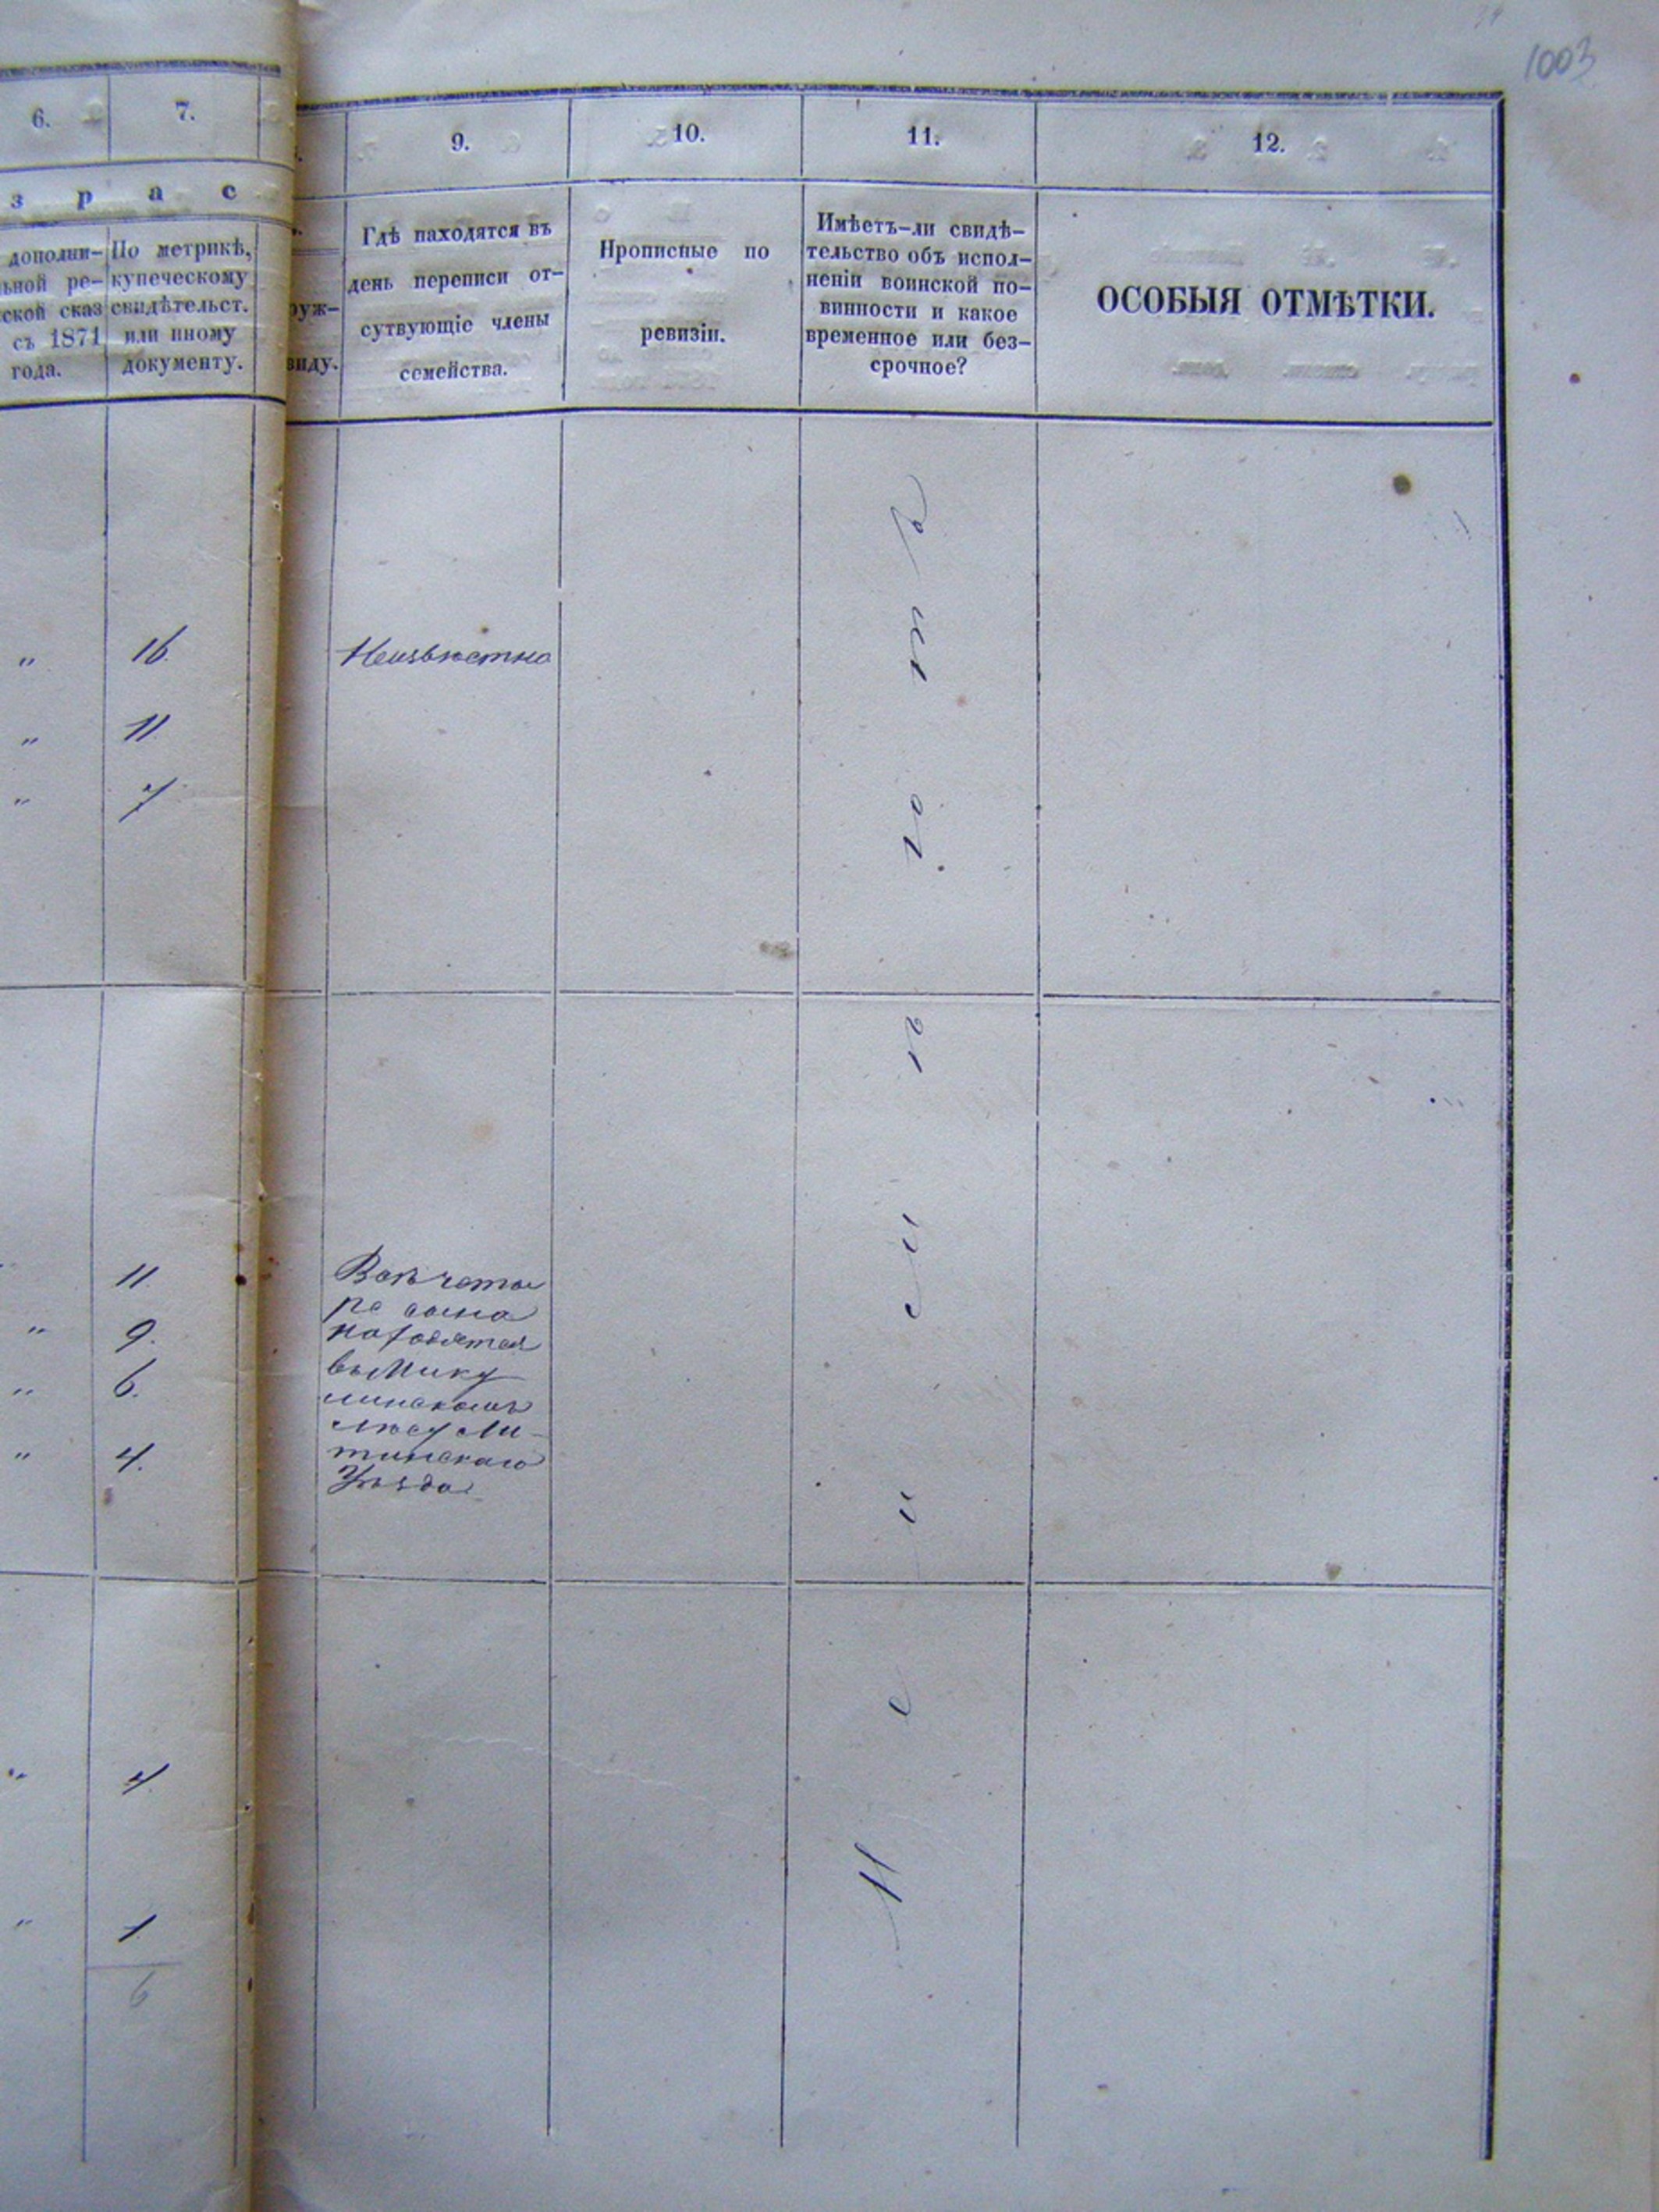 1003
6.
7.
з р а с
дополни-
ьной ре-
ской сказ
съ 1871
года.
По метрикѣ,
купеческому
свидѣтельст.
или иному
документу.
руж-
виду.
9.
10.
11.
12.
Гдѣ находятся въ
день переписи от-
сутвующіе члены
семейства.
Прописные по
ревизіи.
Имѣетъ-ли свидѣ-
тельство объ испол-
неніи воинской по-
винности и какое
временное или без-
срочное?
ОСОБЫЯ ОТМѢТКИ.
" 16. Неизвѣстно
" 11.
" 7
11.
" 9.
" 6.
" 4.
Всѣ четы
ре сына
находятся
въ Мику
линскомъ
лѣсу Ли-
тинскаго
Уѣзда
" 4.
" 1.
6
Не имѣютъ